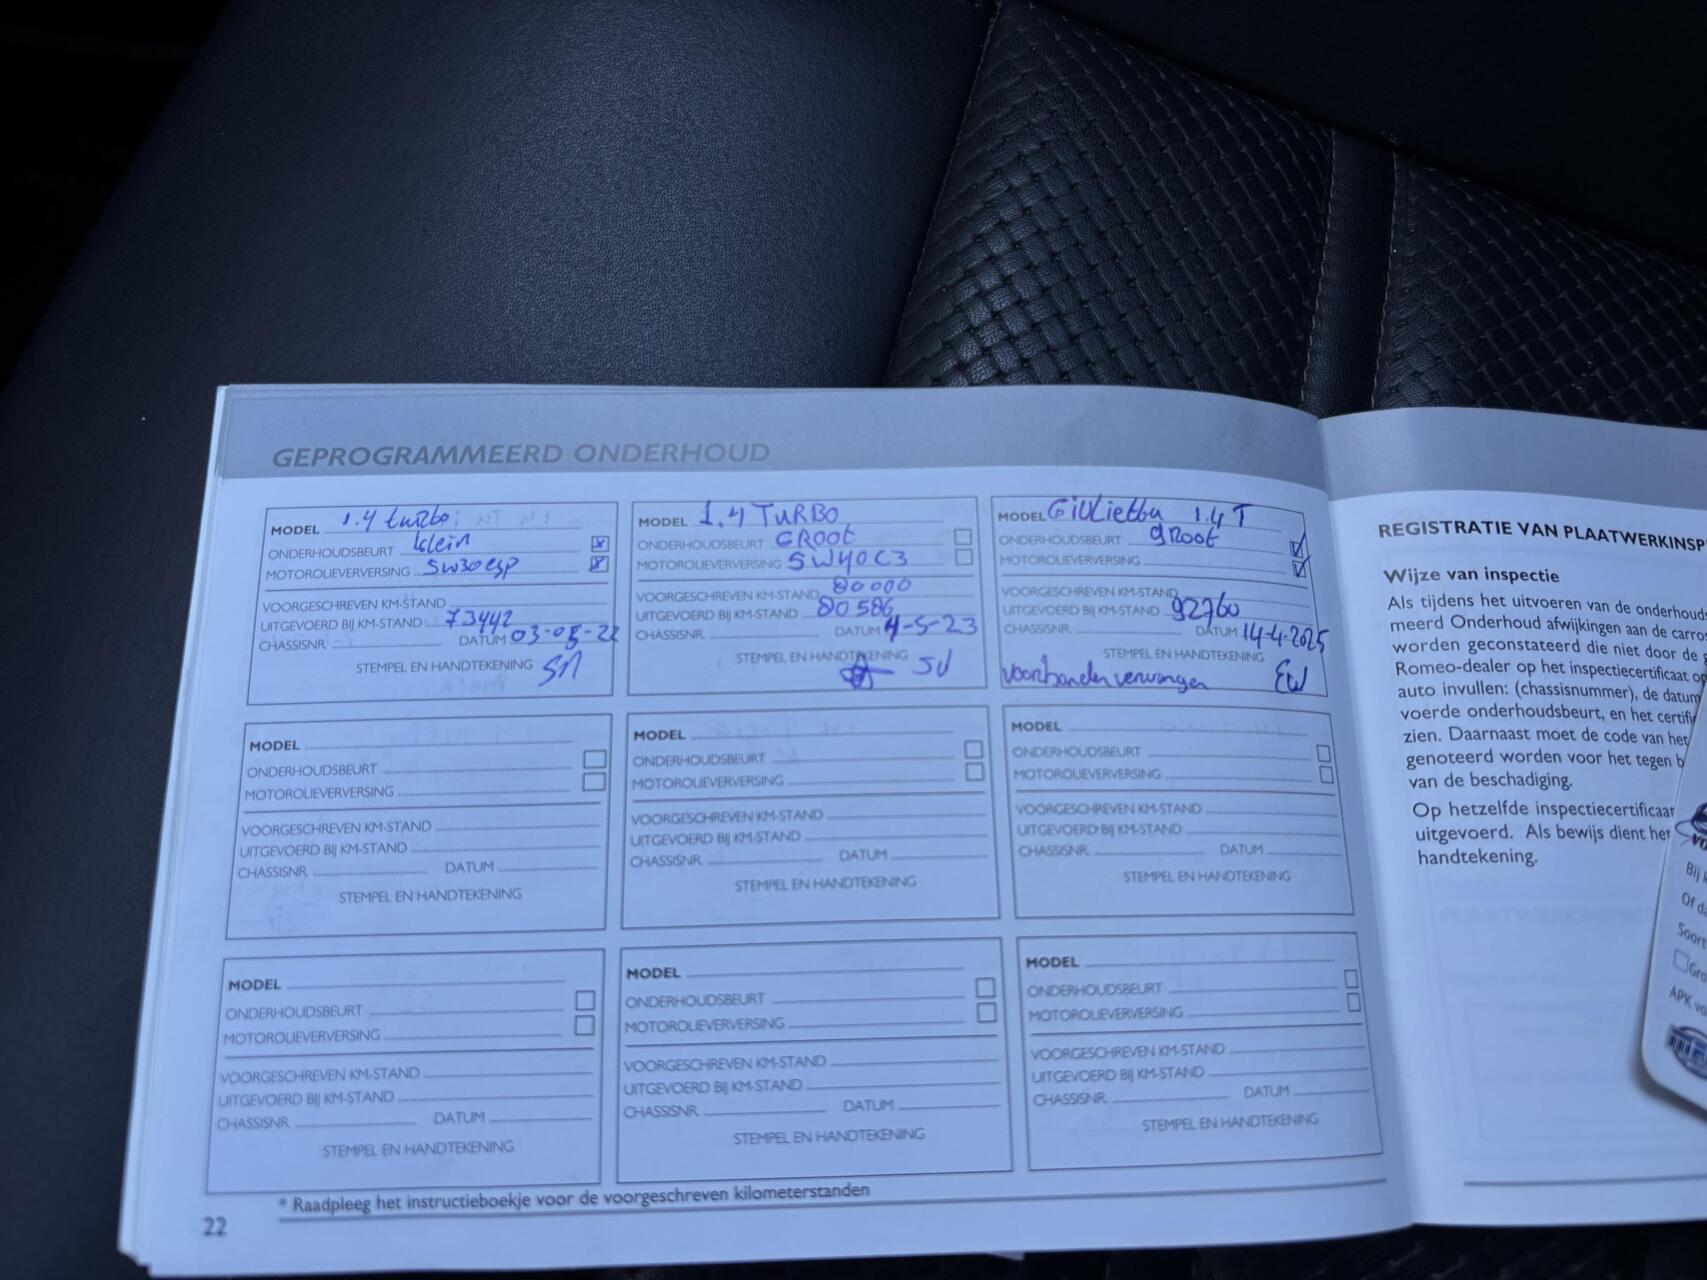 GEPROGRAMMEERD ONDERHOUD
MODEL 1.4 turbo
ONDERHOUDSBEURT klein
MOTOROLIEVERVERSING 5W30 esp
VOORGESCHREVEN KM-STAND
UITGEVOERD BIJ KM-STAND 73442
CHASSISNR. DATUM 03-05-22
STEMPEL EN HANDTEKENING
MODEL 1.4 TURBO
ONDERHOUDSBEURT GROOT
MOTOROLIEVERVERSING 5W40 C3
VOORGESCHREVEN KM-STAND 80000
UITGEVOERD BIJ KM-STAND 80586
CHASSISNR. DATUM 4-5-23
STEMPEL EN HANDTEKENING
MODEL Giulietta 1.4 T
ONDERHOUDSBEURT groot
MOTOROLIEVERVERSING
VOORGESCHREVEN KM-STAND
UITGEVOERD BIJ KM-STAND 92760
CHASSISNR. DATUM 14-4-2025
STEMPEL EN HANDTEKENING
MODEL
ONDERHOUDSBEURT
MOTOROLIEVERVERSING
VOORGESCHREVEN KM-STAND
UITGEVOERD BIJ KM-STAND
CHASSISNR. DATUM
STEMPEL EN HANDTEKENING
MODEL
ONDERHOUDSBEURT
MOTOROLIEVERVERSING
VOORGESCHREVEN KM-STAND
UITGEVOERD BIJ KM-STAND
CHASSISNR. DATUM
STEMPEL EN HANDTEKENING
MODEL
ONDERHOUDSBEURT
MOTOROLIEVERVERSING
VOORGESCHREVEN KM-STAND
UITGEVOERD BIJ KM-STAND
CHASSISNR. DATUM
STEMPEL EN HANDTEKENING
MODEL
ONDERHOUDSBEURT
MOTOROLIEVERVERSING
VOORGESCHREVEN KM-STAND
UITGEVOERD BIJ KM-STAND
CHASSISNR. DATUM
STEMPEL EN HANDTEKENING
MODEL
ONDERHOUDSBEURT
MOTOROLIEVERVERSING
VOORGESCHREVEN KM-STAND
UITGEVOERD BIJ KM-STAND
CHASSISNR. DATUM
STEMPEL EN HANDTEKENING
MODEL
ONDERHOUDSBEURT
MOTOROLIEVERVERSING
VOORGESCHREVEN KM-STAND
UITGEVOERD BIJ KM-STAND
CHASSISNR. DATUM
STEMPEL EN HANDTEKENING
* Raadpleeg het instructieboekje voor de voorgeschreven kilometerstanden
22
REGISTRATIE VAN PLAATWERKINSP
Wijze van inspectie
Als tijdens het uitvoeren van de onderhoud
meerd Onderhoud afwijkingen aan de carros
worden geconstateerd die niet door de
Romeo-dealer op het inspectiecertificaat op
auto invullen: (chassisnummer), de datum
voerde onderhoudsbeurt, en het certifi
zien. Daarnaast moet de code van het
genoteerd worden voor het tegen
van de beschadiging.
Op hetzelfde inspectiecertificaat
uitgevoerd. Als bewijs dient
handtekening.
Bij
Of
Soort
APK